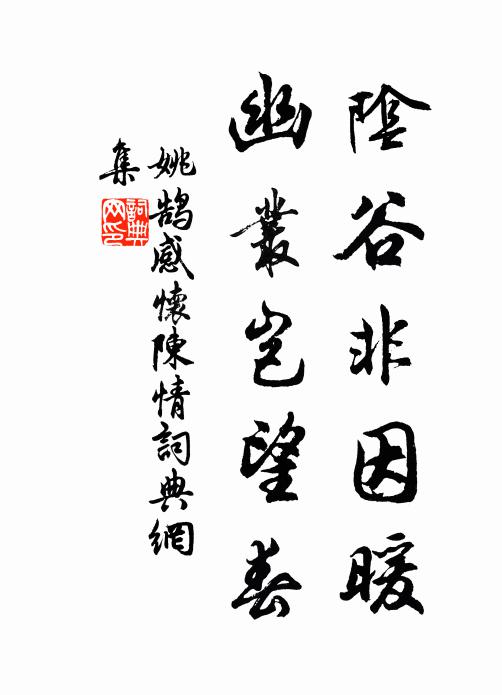 陰谷非因暖
幽叢岂望春
姚鹄感懷陳情詞典網
集
詞典
网印